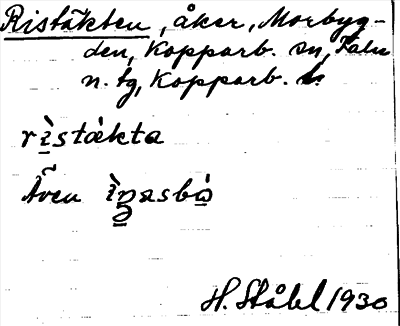 Ristäkten, åker, Morbyg-
den, Kopparb. sn, Falu
n. tg, Kopparb. l.
rìstäkta
Även
H. Ståhl 1930